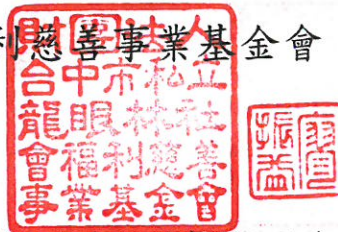 利慈善事業基金會
財團法人
台中市私立
龍眼林社
會福利慈善
事業基金會
振益